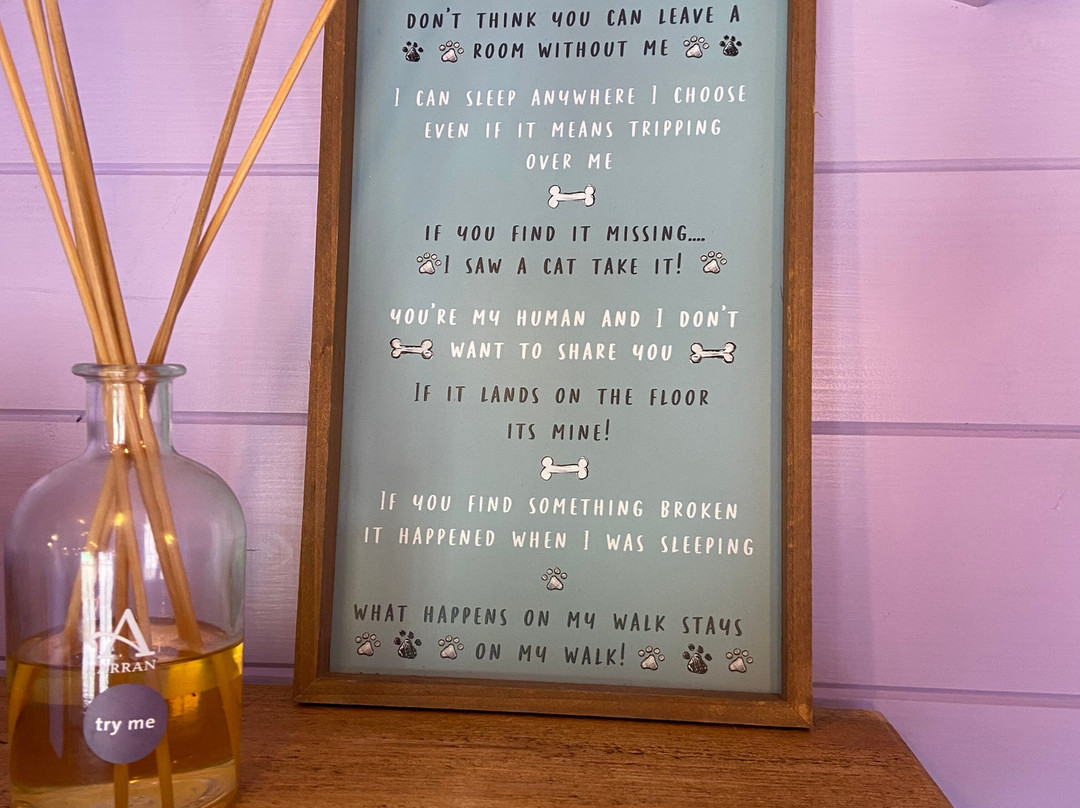 DON'T THINK YOU CAN LEAVE A
ROOM WITHOUT ME
I CAN SLEEP ANYWHERE I CHOOSE
EVEN IF IT MEANS TRIPPING
OVER ME
IF YOU FIND IT MISSING....
I SAW A CAT TAKE IT!
YOU'RE MY HUMAN AND I DON'T
WANT TO SHARE YOU
IF IT LANDS ON THE FLOOR
ITS MINE!
IF YOU FIND SOMETHING BROKEN
IT HAPPENED WHEN I WAS SLEEPING
WHAT HAPPENS ON MY WALK STAYS
ON MY WALK!
A
ARRAN
try me